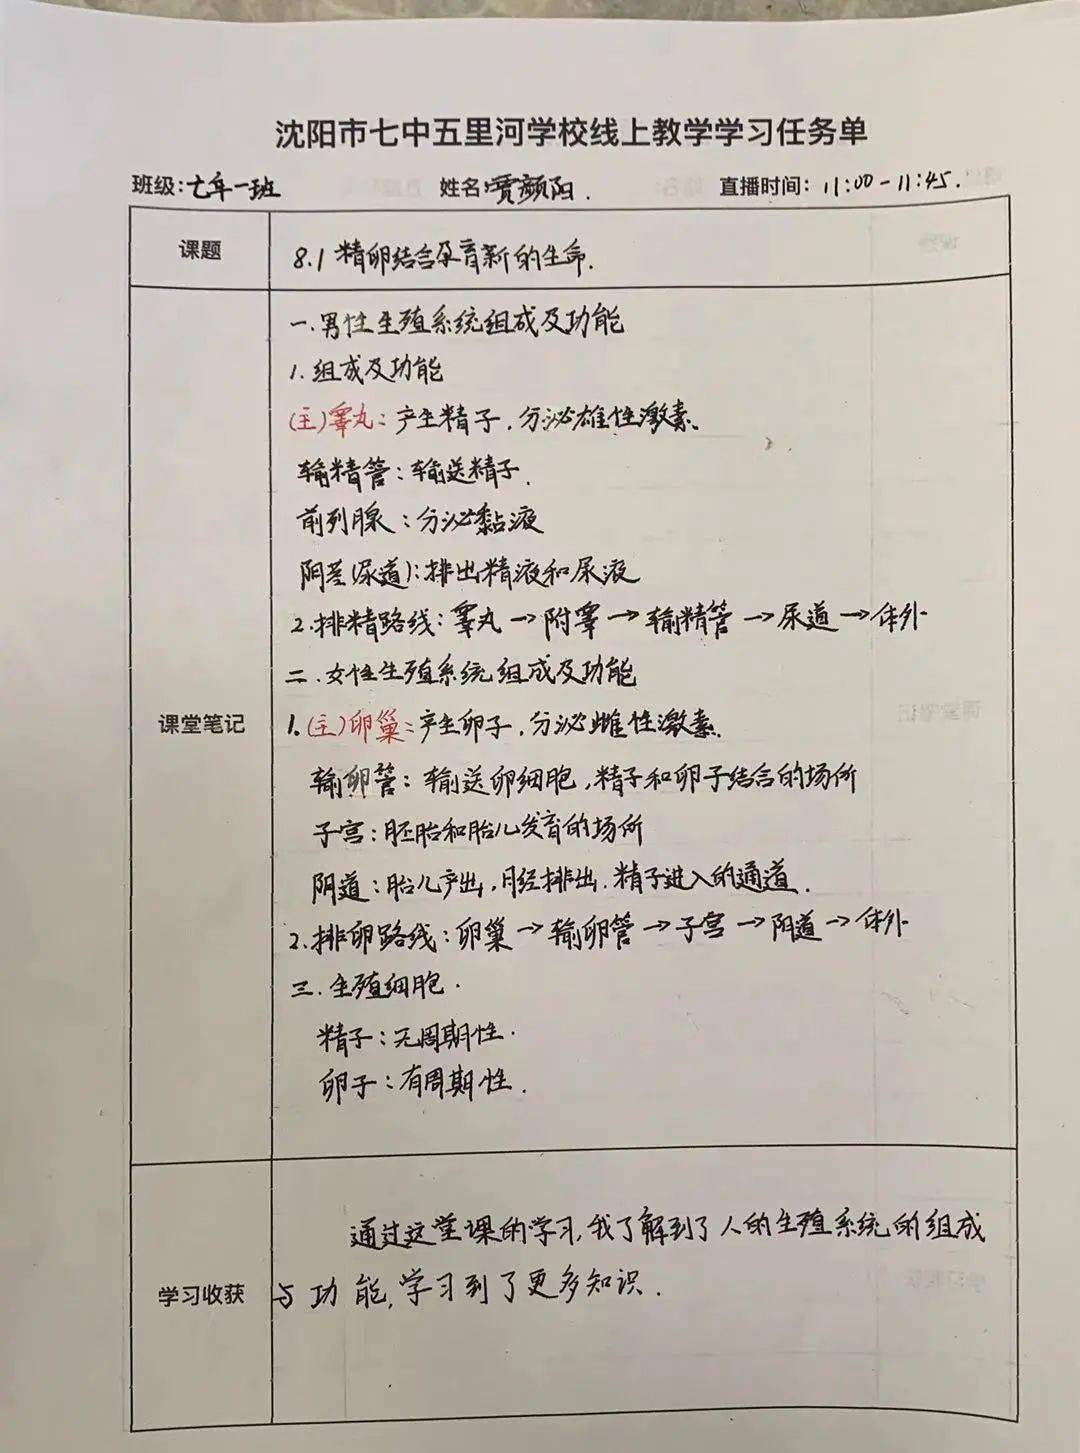 沈阳市七中五里河学校线上教学学习任务单
班级:七年一班 姓名:贾颜阳. 直播时间: 11:00-11:45.
课题
8.1 精卵结合孕育新的生命.
课堂笔记
一.男性生殖系统组成及功能
1.组成及功能
(主)睾丸:产生精子.分泌雄性激素.
输精管:输送精子.
前列腺:分泌黏液
阴茎(尿道):排出精液和尿液
2.排精路线:睾丸→附睾→输精管→尿道→体外
二.女性生殖系统组成及功能
1.(主)卵巢:产生卵子,分泌雌性激素.
输卵管:输送卵细胞,精子和卵子结合的场所
子宫:胚胎和胎儿发育的场所
阴道:胎儿产出,月经排出.精子进入的通道.
2.排卵路线:卵巢→输卵管→子宫→阴道→体外
三.生殖细胞.
精子:无周期性.
卵子:有周期性.
学习收获
通过这堂课的学习,我了解到了人的生殖系统的组成
与功能,学习到了更多知识.